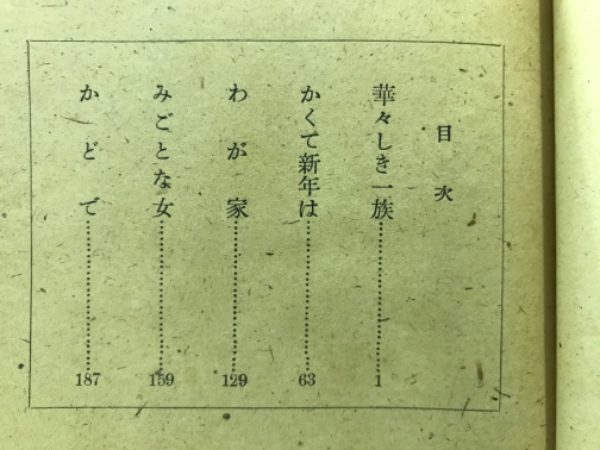 目次
華々しき一族……………………1
かくて新年は……………………63
わが家……………………129
みごとな女……………………159
かどで……………………187